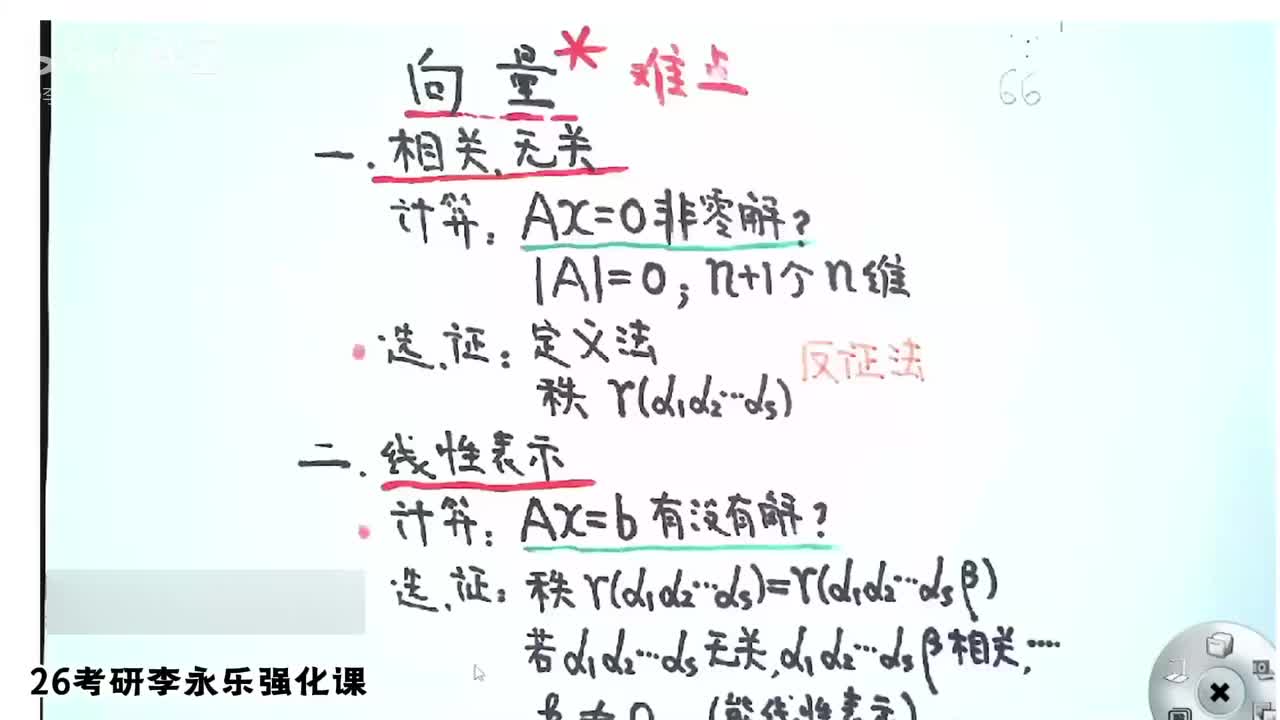 向量* 难点
66
一. 相关, 无关
计算: Ax=0 非零解?
|A|=0; n+1个n维
选, 证: 定义法
反证法
秩 r(α₁α₂…αₛ)
二. 线性表示
计算: Ax=b 有没有解?
选, 证: 秩 r(α₁α₂…αₛ)=r(α₁α₂…αₛβ)
若α₁α₂…αₛ无关, α₁α₂…αₛβ相关, …
(能线性表示)
26考研李永乐强化课